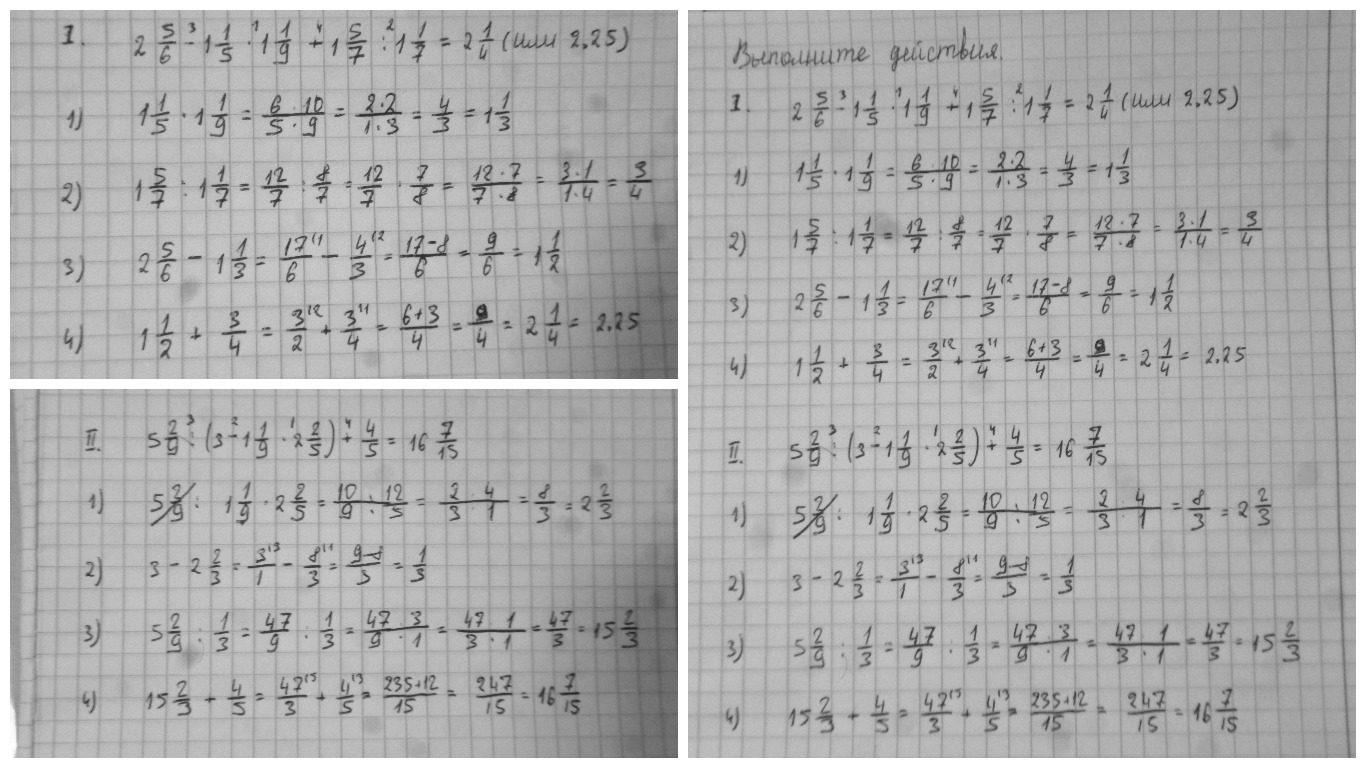 I. 2 5/6 - 1 1/5 · 1 1/9 + 1 5/7 : 1 1/7 = 2 1/4 (или 2.25)
1) 1 1/5 · 1 1/9 = 6·10/5·9 = 2·2/1·3 = 4/3 = 1 1/3
2) 1 5/7 : 1 1/7 = 12/7 : 8/7 = 12/7 · 7/8 = 12·7/7·8 = 3·1/1·4 = 3/4
3) 2 5/6 - 1 1/3 = 17/6 - 4/3 = 17-8/6 = 9/6 = 1 1/2
4) 1 1/2 + 3/4 = 3/2 + 3/4 = 6+3/4 = 9/4 = 2 1/4 = 2.25
II. 5 2/9 : (3 - 1 1/9 · 2 2/5) + 4/5 = 16 7/15
1) 5 2/9 : 1 1/9 · 2 2/5 = 10/9 · 12/5 = 2·4/3·1 = 8/3 = 2 2/3
2) 3 - 2 2/3 = 3/1 - 8/3 = 9-8/3 = 1/3
3) 5 2/9 : 1/3 = 47/9 : 1/3 = 47·3/9·1 = 47·1/3·1 = 47/3 = 15 2/3
4) 15 2/3 + 4/5 = 47/3 + 4/5 = 235+12/15 = 247/15 = 16 7/15
Выполните действия.
I. 2 5/6 - 1 1/5 · 1 1/9 + 1 5/7 : 1 1/7 = 2 1/4 (или 2.25)
1) 1 1/5 · 1 1/9 = 6·10/5·9 = 2·2/1·3 = 4/3 = 1 1/3
2) 1 5/7 : 1 1/7 = 12/7 : 8/7 = 12/7 · 7/8 = 12·7/7·8 = 3·1/1·4 = 3/4
3) 2 5/6 - 1 1/3 = 17/6 - 4/3 = 17-8/6 = 9/6 = 1 1/2
4) 1 1/2 + 3/4 = 3/2 + 3/4 = 6+3/4 = 9/4 = 2 1/4 = 2.25
II. 5 2/9 : (3 - 1 1/9 · 2 2/5) + 4/5 = 16 7/15
1) 5 2/9 : 1 1/9 · 2 2/5 = 10/9 · 12/5 = 2·4/3·1 = 8/3 = 2 2/3
2) 3 - 2 2/3 = 3/1 - 8/3 = 9-8/3 = 1/3
3) 5 2/9 : 1/3 = 47/9 : 1/3 = 47·3/9·1 = 47·1/3·1 = 47/3 = 15 2/3
4) 15 2/3 + 4/5 = 47/3 + 4/5 = 235+12/15 = 247/15 = 16 7/15